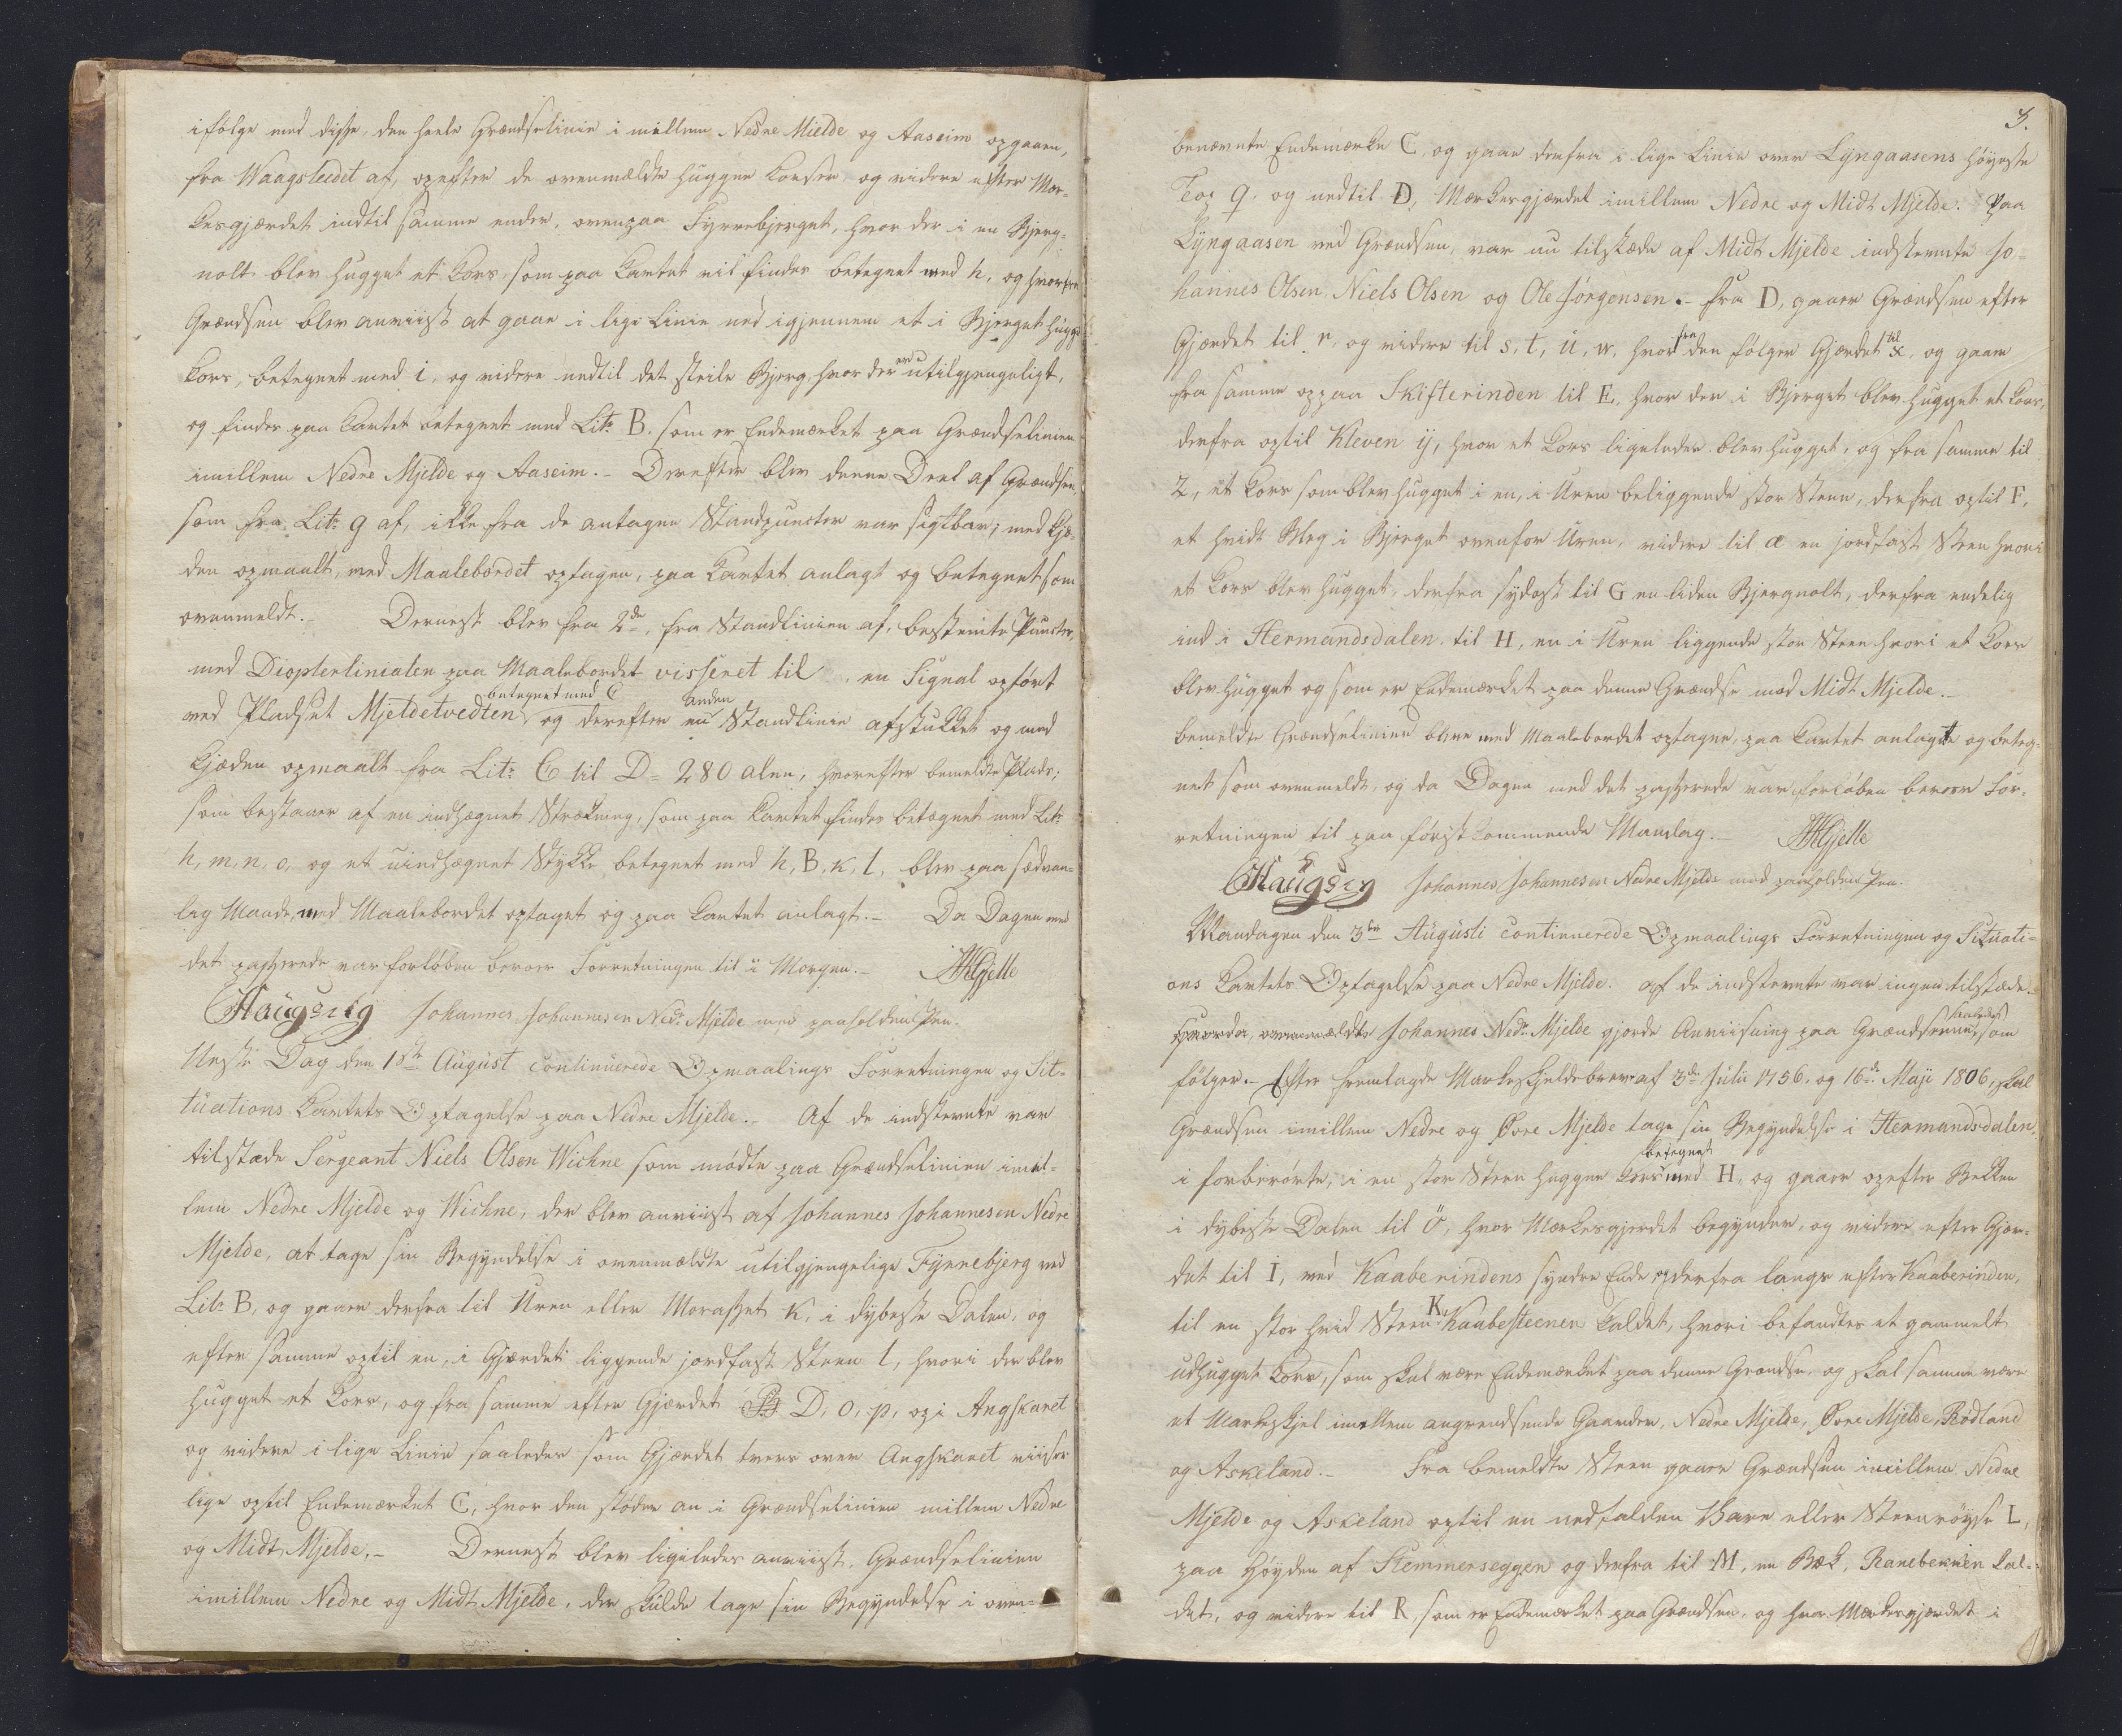 ifølge med disse, den heele Grændselinie i mellem Nedre Mielde og Aaseim opgaaen,
fra Waagsleedet af, opefter de ovenmældte huggne Korser og videre efter Mær-
kesgjærdet indtil samme ender, ovenpaa Fyrrebjerget, hvor der i en Bjerg-
nolt blev hugget et Kors, som paa Kartet vil findes betegnet med h, og hvorfra
Grændsen blev anviist at gaae i lige Linie ned igjennem et i Bjerget hugget
Kors, betegnet med i, og videre nedtil det steile Bjerg, hvor der er utilgjengeligt,
og findes paa Kartet betegnet med Litr B. som er Endemærket paa Grændselinien
imellem Nedre Mjelde og Aaseim.- Derefter blev denne Deel af Grændsen,
som fra Litr g af, ikke fra de antagne Standpuncter var sigtbar; med Kjæ-
den opmaalt, med Maalebordet optagen, paa Kartet anlagt og betegnet som
ovenmeldt.- Dernest blev fra 2de, fra Standlinien af, bestemte Puncter,
med Diopterlinialen paa Maalebordet visseret til en Signal opført
ved Pladset Mjeldetvedten betegnet med C og derefter en anden Standlinie afstukket og med
Kjæden opmaalt fra Litr C til D = 280 alen, hvorefter bemeldte Plads;
som bestaaer af en indhægnet Strækning, som paa Kartet findes betegnet med Litr
h, m, n, o, og et uindhægnet Stykke betegnet med h, B, k, l, blev paa sædvan-
lig Maade, med Maalebordet optaget og paa Kartet anlagt.- Da Dagen med
det passerede var forløben beroer Forretningen til i Morgen.- Hjelle
Haugsrig Johannes Johannesen Nedr Mjelde med paaholden Pen.
Neste Dag den 1ste August continuerede Opmaalings Forretningen og Sit-
tuations Kartets Optagelse paa Nedre Mjelde.- Af de indstevnte var
tilstæde Sergeant Niels Olsen Wichne som mødte paa Grændselinien imel-
lem Nedre Mjelde og Wichne, der blev anviist af Johannes Johannesen Nedre
Mjelde, at tage sin Begyndelse i ovenmældte utilgjengelige Fyrrebjerg ved
Litr B, og gaaer derfra til Uren eller Morasset K, i dybeste Dalen, og
efter samme optil en, i Gjærdet liggende jordfast Steen l, hvori der blev
hugget et Kors, og fra samme efter Gjærdet D, o, p, op i Angskaret
og videre i lige Linie saaledes som Gjærdet tvers over Angskaret viiser
lige optil Endemærket C, hvor den støder an i Grændselinien mellem Nedre
og Midt Mjelde.- Dernest blev ligeledes anviist, Grændselinien
imellem Nedre og Midt Mjelde, der skulde tage sin Begyndelse i oven-
3.
benævnte Endemærke C, og gaae derfra i lige Linie over Lyngaasens høyeste
Top q. og nedtil D, Mærkesgjærdet imellem Nedre og Midt Mjelde. Paa
Lyngaasen ved Grændsen, var nu tilstæde af Midt Mjelde indstevnte Jo-
hannes Olsen, Niels Olsen og Ole Jørgensen.- Fra D, gaaer Grændsen efter
Gjærdet til r, og videre til s, t, u, w, hvorfra den følger Gjærdet til x, og gaaer
fra samme oppaa Skifterinden til E, hvor der i Bjerget blev hugget et Kors,
derfra optil Kleven ÿ, hvor et Kors ligeledes blev hugget, og fra samme til
Z, et Kors som blev hugget i en, i Uren beliggende stor Steen, derfra optil F,
et hvidt Meg i Bjerget ovenfor Uren, videre til æ en jordfast Steen hvori
et Kors blev hugget, derfra sydost til G en liden Bjergnolt, derfra endelig
ind i Hermandsdalen til H, en i Uren liggende stor Steen hvori et Kors
blev hugget og som er Endemærket paa denne Grændse mod Midt Mjelde.-
bemeldte Grændselinien bleve med Maalebordet optagne, paa Kartet anlagte og beteg-
net som ovenmeldt, og da Dagen med det passerede var forløben beroer For-
retningen til paa førstkommende Mandag.- Hjelle
Haugsrig Johannes Johannesen Nedre Mjelde med paaholden Pen.
Mandagen den 3die Augusti continuerede Opmaalings Forretningen og Situati-
ons Kartets Optagelse paa Nedre Mjelde. af de indstevnte var ingen tilstæde.
ovenmældte Johannes Nedr Mjelde gjorde Anviisning paa Grændserne, saaledes som
følger.- Efter fremlagde Markeskjeldebreve af 3de Julii 1756, og 16de Maji 1806, skal
Grændsen imellem Nedre og Øvre Mjelde tage sin Begyndelse i Hermandsdalen,
i forberørte, i en stor Steen huggen Kors betegnet med H, og gaaer opefter Bekken
i dybeste Dalen til Ö, hvor Mærkesgjerdet begynder, og videre efter Gjær-
det til I, ved Kaaberindens syndre Ende og derfra langs efter Kaaberinden,
til en stor hvid Steen K, Kaabesteenen kaldet, hvori befandtes et gammelt
udhugget Kors, som skal være Endemærket paa denne Grændse, og skal samme være
et Markeskjel imellem angrendsende Gaarder, Nedre Mjelde, Øvre Mjelde, Rødland
og Askeland.- Fra bemeldte Steen gaaer Grændsen imellem Nedre
Mjelde og Askeland optil en nedfalden Vare eller Steenrøyse L,
paa Høyden af Stemmerseggen og derfra til M, en Bæk, Ranebekken kal-
det, og videre til R, som er Endemærket paa Grændsen, og hvor Mærkesgjærdet i